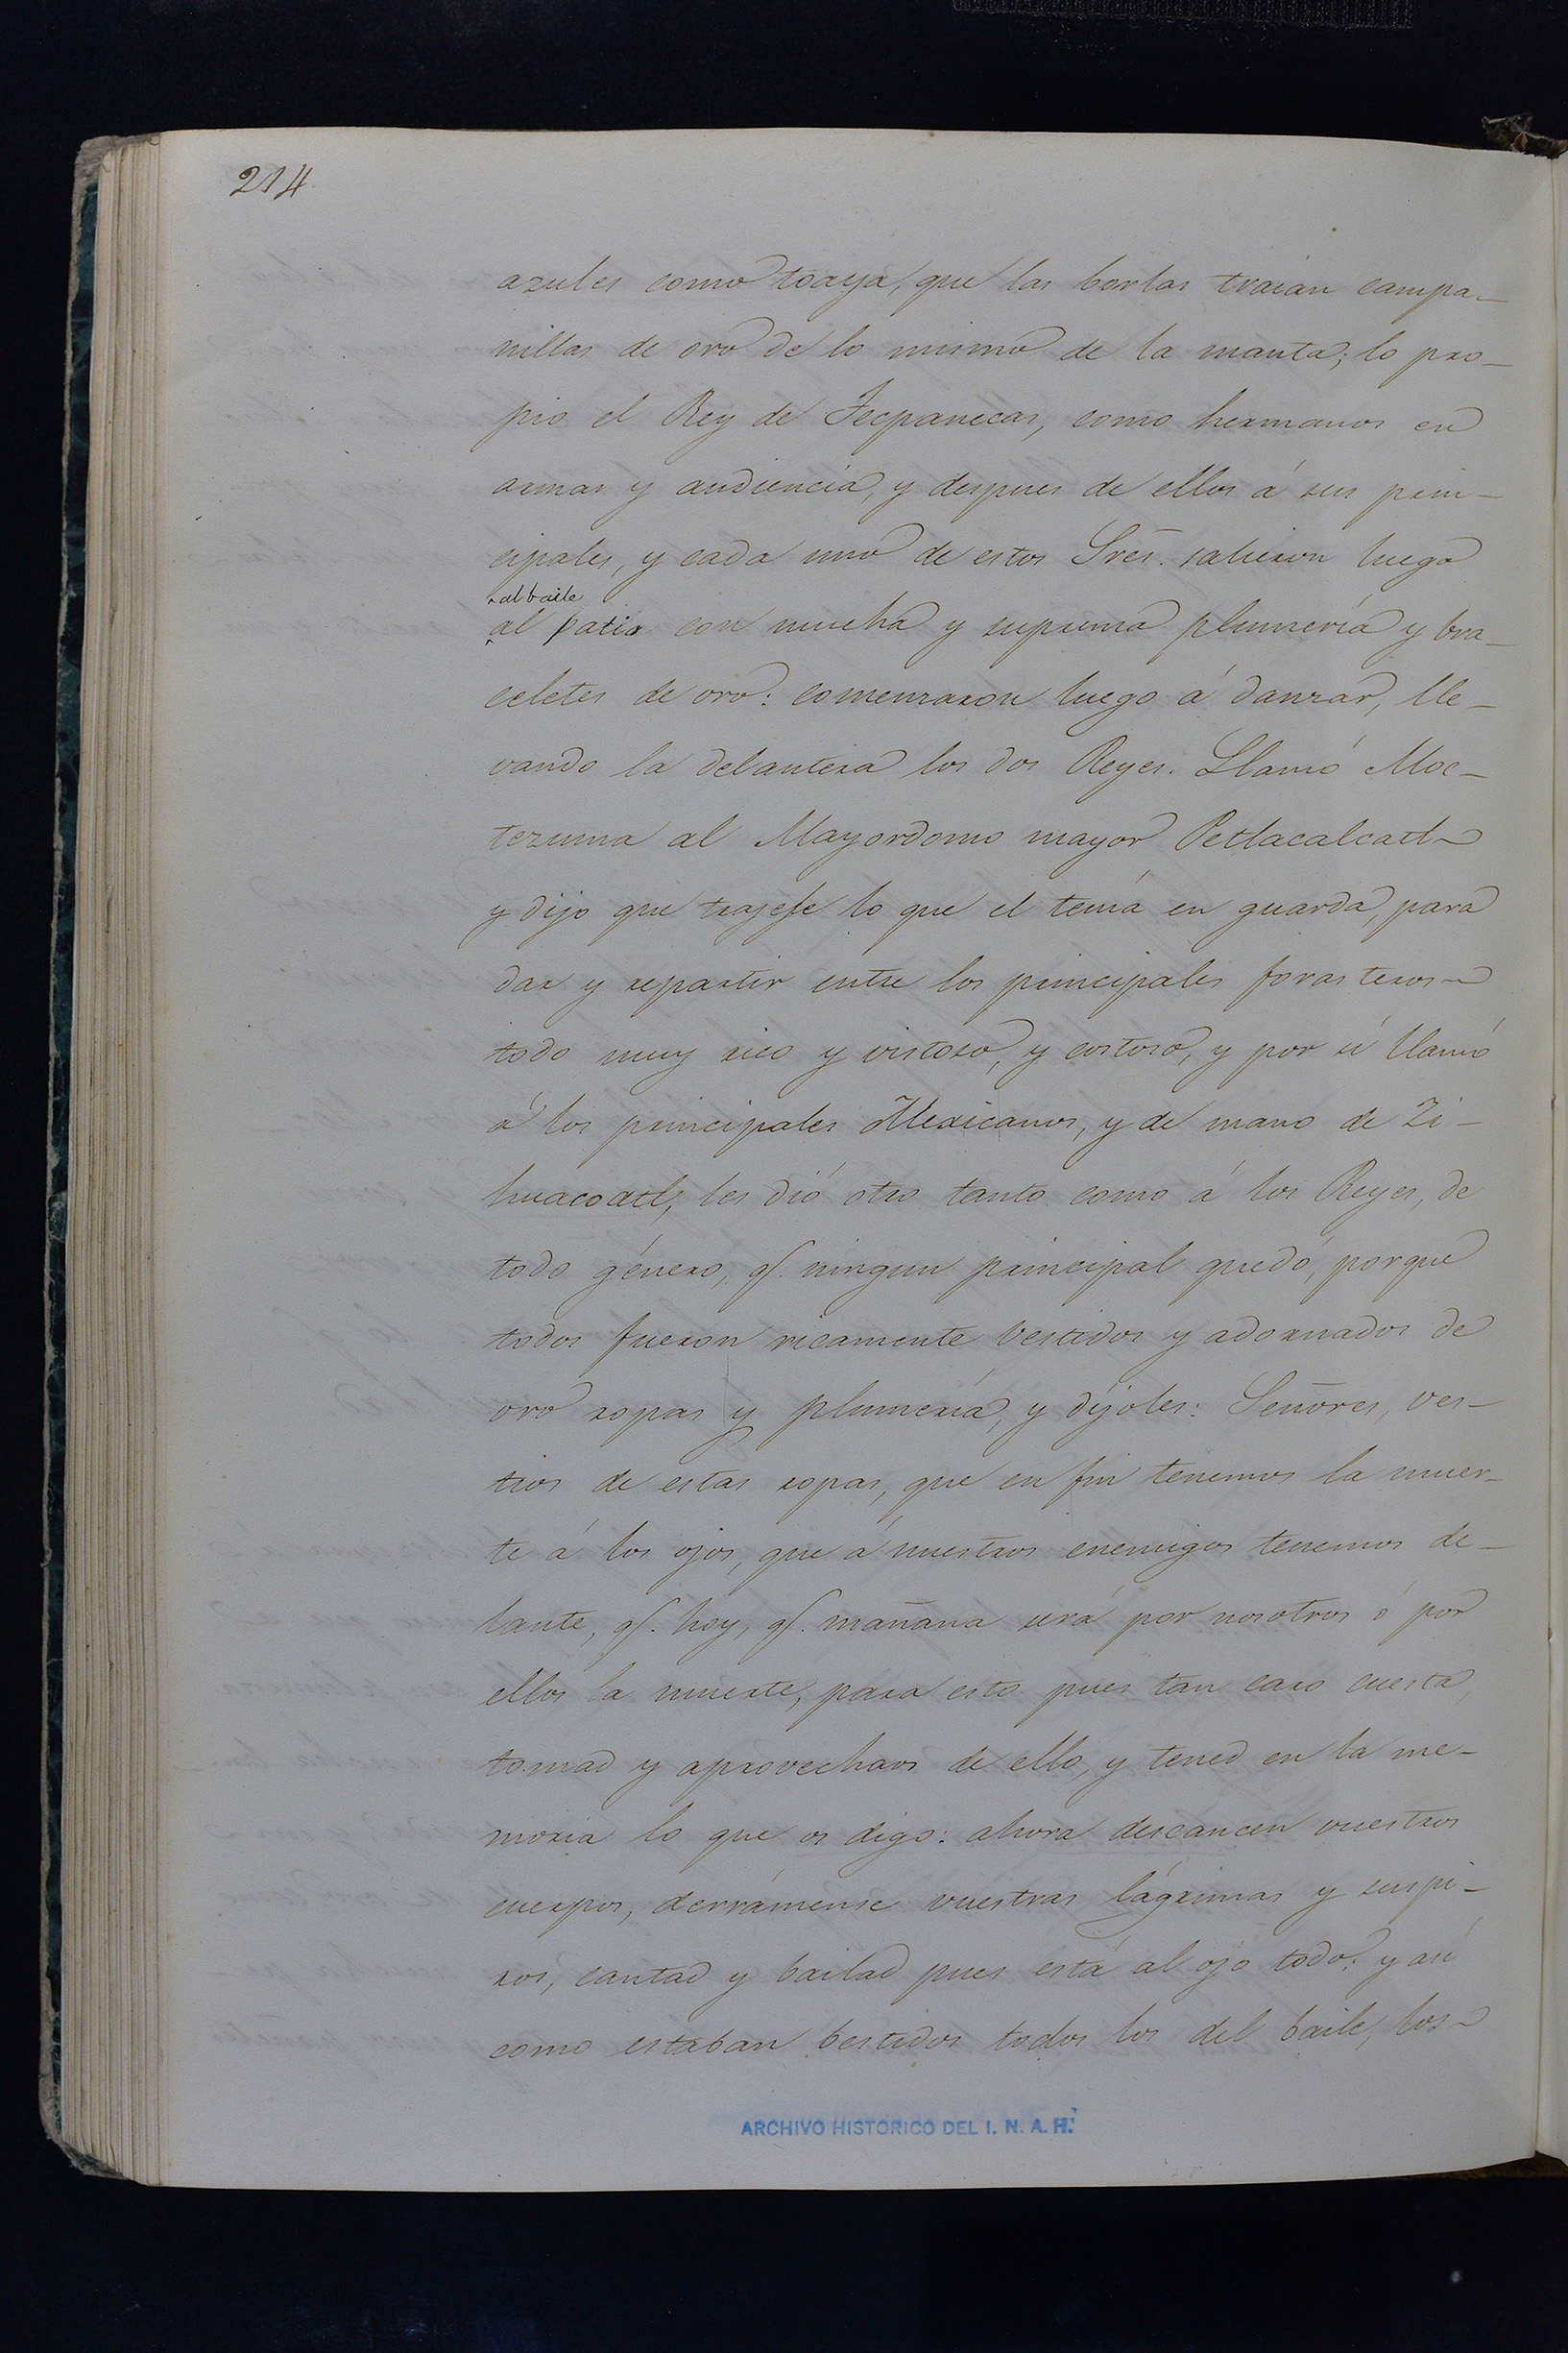 214.
azules como toaya, que las borlas traían campa-
nillas de oro de lo mismo de la manta; lo pro-
pio el Rey de Tecpanecas, como hermanos en
armas y audiencia, y despues de ellos á sus prin-
cipales, y cada uno de estos Sres. salieron luego
al baile
al patio con mucha y suprema plumería y bra-
celetes de oro: comenzaron luego á danzar, lle-
vando la delantera los dos Reyes. Llamó Moc-
tezuma al Mayordomo mayor Petlacalcatl
y dijo que trajese lo que el tenía en guarda, para
dar y repartir entre los principales forasteros
todo muy rico y vistoso, y costoso, y por sí llamó
á los principales Mexicanos, y de mano de Zi-
huacoatl, les dió otro tanto como á los Reyes, de
todo género, q. ningun principal quedó, porque
todos fueron ricamente vestidos y adornados de
oro ropas y plumería, y díjoles: Señores, ves-
tios de estas ropas, que en fin tenemos la muer-
te á los ojos, que á nuestros enemigos tenemos de-
lante, q. hoy, q. mañana será por nosotros ó por
ellos la muerte, para esto pues tan caro cuesta,
tomad y aprovechaos de ello, y tened en la me-
moria lo que os digo: ahora descancen vuestros
cuerpos, derrámense vuestras lágrimas y suspi-
ros, cantad y bailad pues está al ojo todo: y así
como estaban bestidos todos los del baile, los
ARCHIVO HISTORICO DEL I. N. A. H.